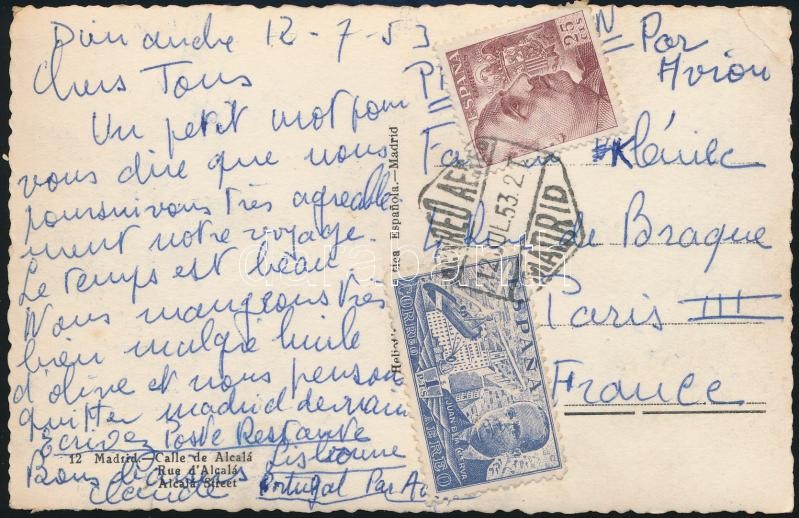 Dimanche 12-7-53
Chers Tous
Un petit mot pour
vous dire que nous
poursuivons très agréable
ment notre voyage.
Le temps est beau.
Nous mangeons très
bien malgré huile
d'olive et nous pensons
quitter madrid demain
Ecrivez Poste Restante
Lisbonne
Portugal Par
Bons baisers
Claude
12 Madrid.—Calle de Alcalá
Rue d'Alcalá
Alcalá Street
Española.—Madrid
Par
Avion
de Braque
Paris III
France
25 CTS
ESPAÑA
CORREO AEREO
12 JUL. 53. 2
MADRID
CORREO AEREO
ESPAÑA
JUAN DE LA CIERVA
darabanth.com